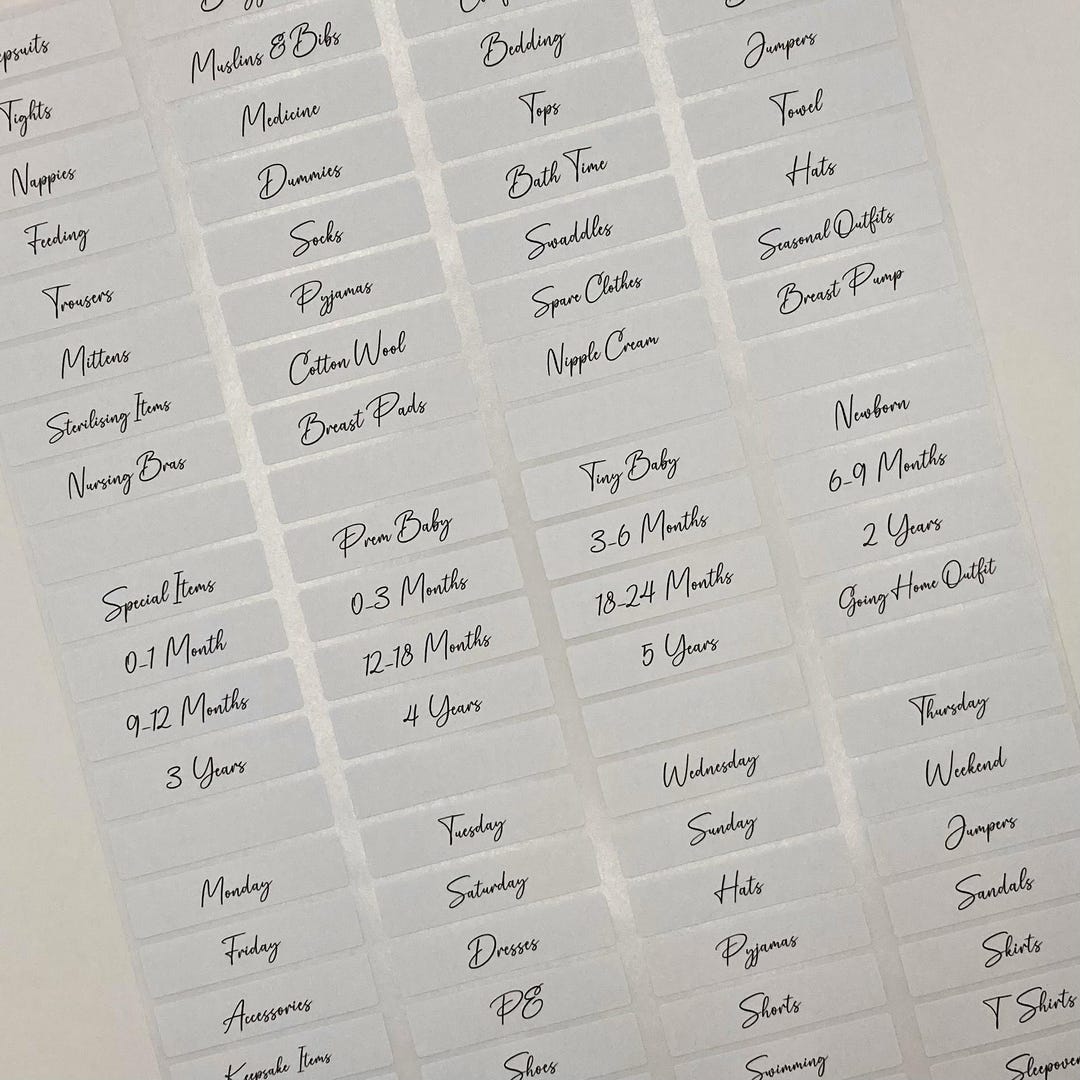 Muslins & Bibs
Bedding
Jumpers
Tights
Medicine
Tops
Towel
Nappies
Dummies
Bath Time
Hats
Feeding
Socks
Swaddles
Seasonal Outfits
Trousers
Pyjamas
Spare Clothes
Breast Pump
Mittens
Cotton Wool
Nipple Cream
Sterilising Items
Breast Pads
Newborn
Nursing Bras
Tiny Baby
6-9 Months
Prem Baby
3-6 Months
2 Years
Special Items
0-3 Months
18-24 Months
Going Home Outfit
0-1 Month
12-18 Months
5 Years
9-12 Months
4 Years
Thursday
3 Years
Wednesday
Weekend
Tuesday
Sunday
Jumpers
Monday
Saturday
Hats
Sandals
Friday
Dresses
Pyjamas
Skirts
Accessories
PE
Shorts
T Shirts
Keepsake Items
Shoes
Swimming